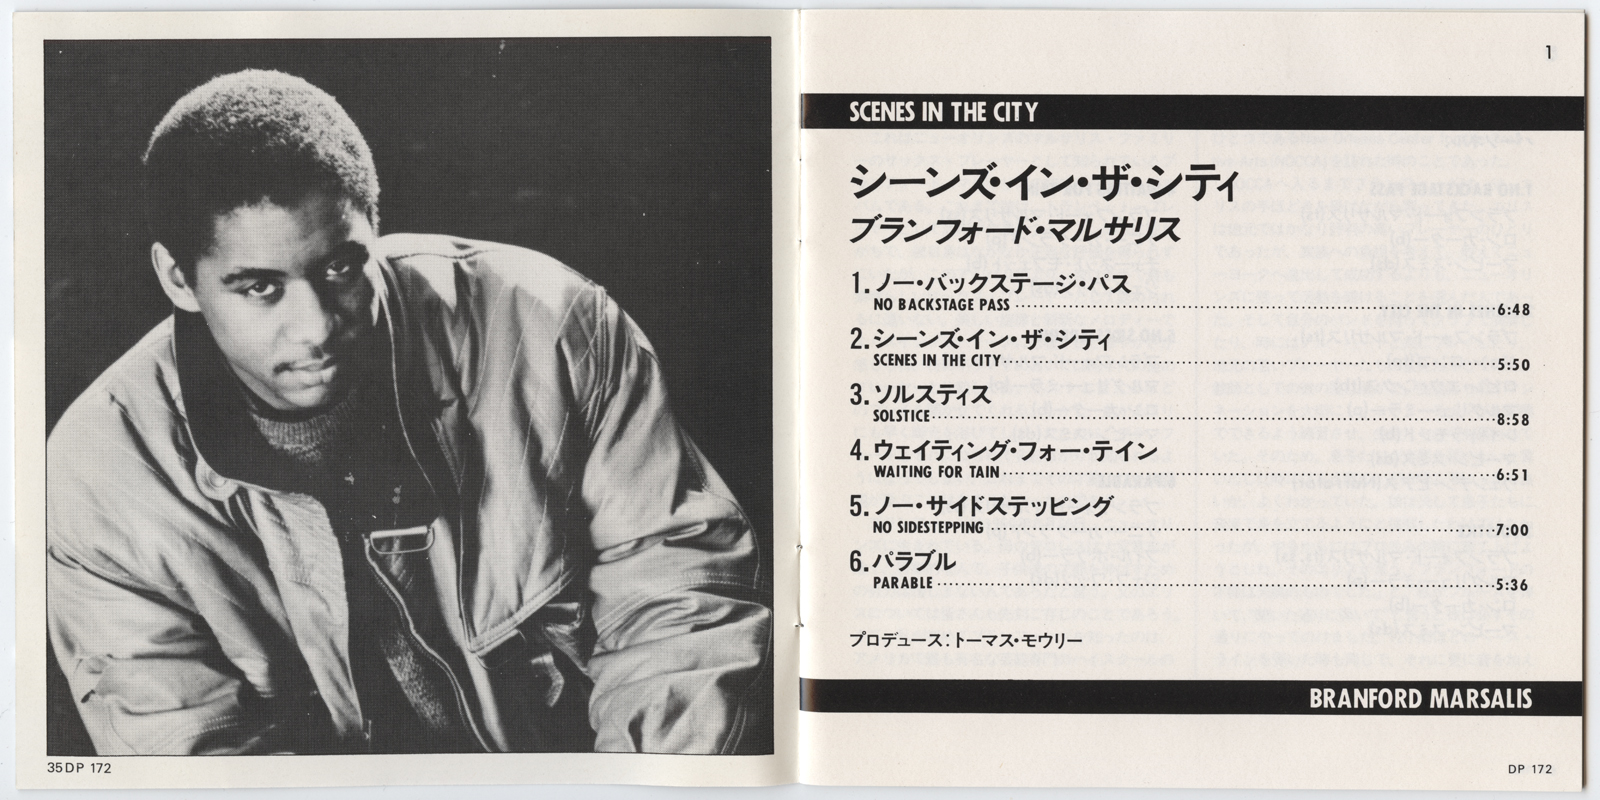 35DP 172
1
SCENES IN THE CITY
シーンズ・イン・ザ・シティ
ブランフォード・マルサリス
1. ノー・バックステージ・パス
NO BACKSTAGE PASS 6:48
2. シーンズ・イン・ザ・シティ
SCENES IN THE CITY 5:50
3. ソルスティス
SOLSTICE 8:58
4. ウェイティング・フォー・テイン
WAITING FOR TAIN 6:51
5. ノー・サイドステッピング
NO SIDESTEPPING 7:00
6. パラブル
PARABLE 5:36
プロデュース：トーマス・モウリー
BRANFORD MARSALIS
DP 172